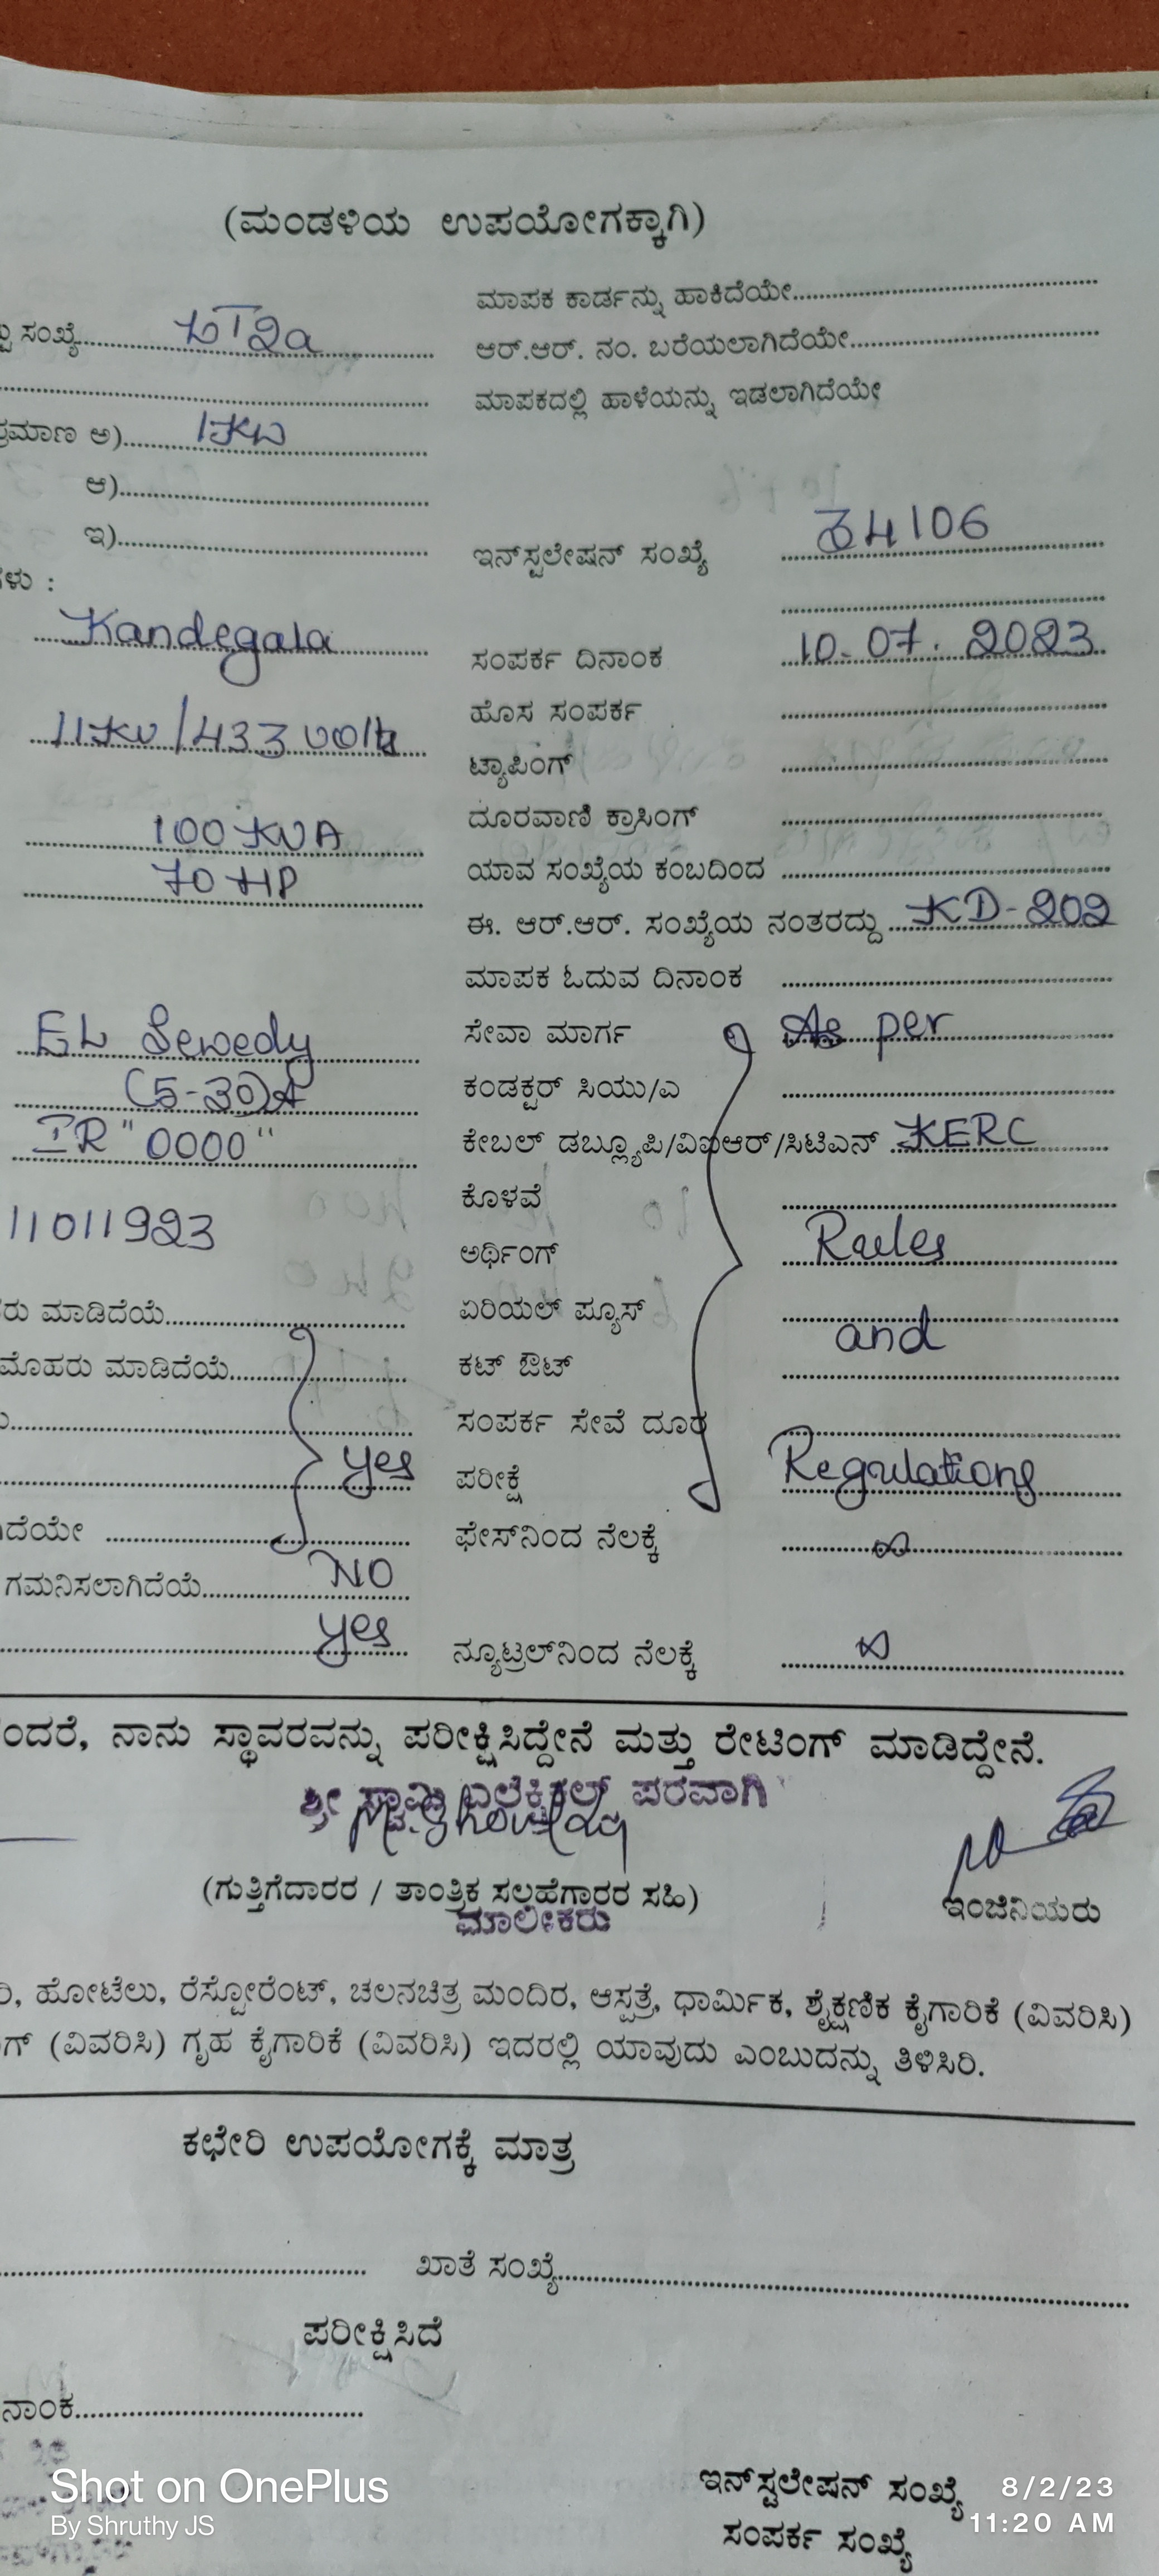 (ಮಂಡಳಿಯ ಉಪಯೋಗಕ್ಕಾಗಿ)
ಸಂಖ್ಯೆ LT2a
ಅ) 1KW
ಆ)
ಇ)
Kandegala
11KV/433 volts
100 KVA
70 HP
EL Sewedy
(5-30)A
IR "0000"
11011923
ಮಾಡಿದೆಯೆ
ಮೊಹರು ಮಾಡಿದೆಯೆ
yes
ಗಮನಿಸಲಾಗಿದೆಯೆ NO
yes
ಮಾಪಕ ಕಾರ್ಡನ್ನು ಹಾಕಿದೆಯೇ
ಆರ್.ಆರ್. ನಂ. ಬರೆಯಲಾಗಿದೆಯೇ
ಮಾಪಕದಲ್ಲಿ ಹಾಳೆಯನ್ನು ಇಡಲಾಗಿದೆಯೇ
ಇನ್‌ಸ್ಟಲೇಷನ್ ಸಂಖ್ಯೆ 34106
ಸಂಪರ್ಕ ದಿನಾಂಕ 10.07.2023
ಹೊಸ ಸಂಪರ್ಕ
ಟ್ಯಾಪಿಂಗ್
ದೂರವಾಣಿ ಕ್ರಾಸಿಂಗ್
ಯಾವ ಸಂಖ್ಯೆಯ ಕಂಬದಿಂದ
ಈ. ಆರ್.ಆರ್. ಸಂಖ್ಯೆಯ ನಂತರದ್ದು KD-202
ಮಾಪಕ ಓದುವ ದಿನಾಂಕ
ಸೇವಾ ಮಾರ್ಗ As per
ಕಂಡಕ್ಟರ್ ಸಿಯು/ಎ
ಕೇಬಲ್ ಡಬ್ಲ್ಯೂಪಿ/ವಿಐಆರ್/ಸಿಟಿಎನ್ KERC
ಕೊಳವೆ
ಅರ್ಥಿಂಗ್ Rules
ಏರಿಯಲ್ ಪ್ಯೂಸ್
and
ಕಟ್ ಔಟ್
ಸಂಪರ್ಕ ಸೇವೆ ದೂರ
ಪರೀಕ್ಷೆ Regulations
ಫೇಸ್‌ನಿಂದ ನೆಲಕ್ಕೆ ∞
ನ್ಯೂಟ್ರಲ್‌ನಿಂದ ನೆಲಕ್ಕೆ ∞
ನಾನು ಸ್ಥಾವರವನ್ನು ಪರೀಕ್ಷಿಸಿದ್ದೇನೆ ಮತ್ತು ರೇಟಿಂಗ್ ಮಾಡಿದ್ದೇನೆ.
ಶ್ರೀ ಸ್ವಾಮಿ ಎಲೆಕ್ಟ್ರಿಕಲ್ಸ್ ಪರವಾಗಿ
(ಗುತ್ತಿಗೆದಾರರ / ತಾಂತ್ರಿಕ ಸಲಹೆಗಾರರ ಸಹಿ)
ಮಾಲೀಕರು
ಇಂಜಿನಿಯರು
ಹೋಟೆಲು, ರೆಸ್ಟೋರೆಂಟ್, ಚಲನಚಿತ್ರ ಮಂದಿರ, ಆಸ್ಪತ್ರೆ, ಧಾರ್ಮಿಕ, ಶೈಕ್ಷಣಿಕ ಕೈಗಾರಿಕೆ (ವಿವರಿಸಿ)
(ವಿವರಿಸಿ) ಗೃಹ ಕೈಗಾರಿಕೆ (ವಿವರಿಸಿ) ಇದರಲ್ಲಿ ಯಾವುದು ಎಂಬುದನ್ನು ತಿಳಿಸಿರಿ.
ಕಛೇರಿ ಉಪಯೋಗಕ್ಕೆ ಮಾತ್ರ
ಖಾತೆ ಸಂಖ್ಯೆ
ಪರೀಕ್ಷಿಸಿದೆ
ಇನ್‌ಸ್ಟಲೇಷನ್ ಸಂಖ್ಯೆ
ಸಂಪರ್ಕ ಸಂಖ್ಯೆ
Shot on OnePlus
By Shruthy JS
8/2/23
11:20 AM